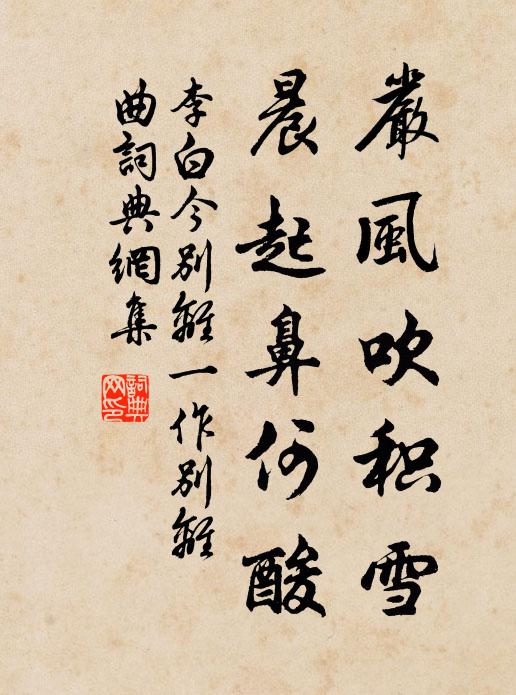 嚴風吹积雪
晨起鼻何酸
李白今别離一作别離
曲詞典網集
詞典
网印